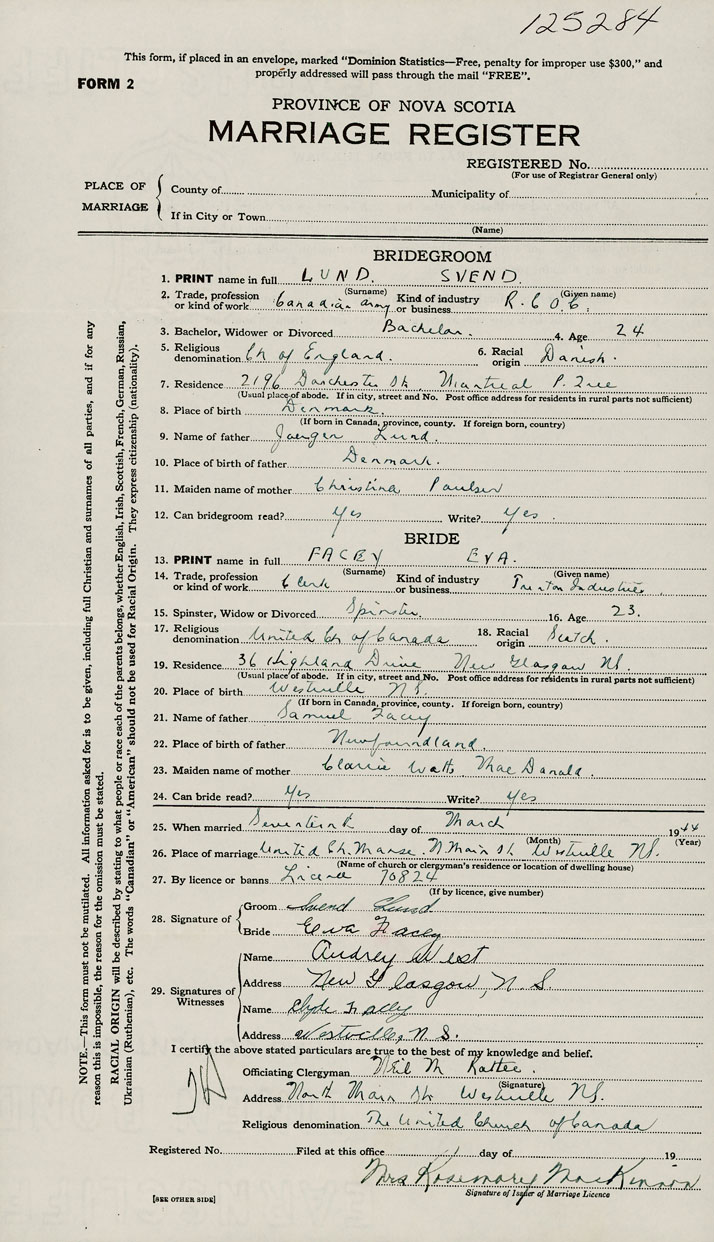 125284
This form, if placed in an envelope, marked "Dominion Statistics—Free, penalty for improper use $300," and
properly addressed will pass through the mail "FREE".
FORM 2
PROVINCE OF NOVA SCOTIA
MARRIAGE REGISTER
REGISTERED No.
(For use of Registrar General only)
PLACE OF MARRIAGE
County of Municipality of
If in City or Town
(Name)
BRIDEGROOM
1. PRINT name in full LUND. SVEND.
(Surname) (Given name)
2. Trade, profession or kind of work Canadian Army Kind of industry or business R.C.O.C.
3. Bachelor, Widower or Divorced Bachelor. 4. Age 24
5. Religious denomination Ch of England. 6. Racial origin Danish.
7. Residence 2196 Dorchester St Montreal P. Que
(Usual place of abode. If in city, street and No. Post office address for residents in rural parts not sufficient)
8. Place of birth Denmark.
(If born in Canada, province, county. If foreign born, country)
9. Name of father Jaergen Lund.
10. Place of birth of father Denmark.
11. Maiden name of mother Christina Paulsen
12. Can bridegroom read? Yes Write? Yes.
BRIDE
13. PRINT name in full FACEY EVA.
(Surname) (Given name)
14. Trade, profession or kind of work Clerk Kind of industry or business Trenton Industries
15. Spinster, Widow or Divorced Spinster. 16. Age 23.
17. Religious denomination United Ch of Canada 18. Racial origin Scotch.
19. Residence 36 Highland Drive New Glasgow NS.
(Usual place of abode. If in city, street and No. Post office address for residents in rural parts not sufficient)
20. Place of birth Westville NS.
(If born in Canada, province, county. If foreign born, country)
21. Name of father Samuel Facey
22. Place of birth of father Newfoundland.
23. Maiden name of mother Watts MacDonald.
24. Can bride read? Yes Write? Yes
25. When married day of March 1944
(Month) (Year)
26. Place of marriage United Ch. Manse. N Main St Westville NS.
(Name of church or clergyman's residence or location of dwelling house)
27. By licence or banns Licence 70824
(If by licence, give number)
28. Signature of
Groom Svend Lund
Bride Eva Facey
29. Signatures of Witnesses
Name Audrey West
Address New Glasgow, N.S.
Name Clyde
Address Westville, N.S.
I certify the above stated particulars are true to the best of my knowledge and belief.
Officiating Clergyman Neil M
(Signature)
Address North Main St Westville NS.
Religious denomination The United Church of Canada
Registered No. Filed at this office day of 19
Mrs Rosemary MacKinnon
Signature of Issuer of Marriage Licence
[SEE OTHER SIDE]
NOTE.—This form must not be mutilated. All information asked for is to be given, including full Christian and surnames of all parties, and if for any
reason this is impossible, the reason for the omission must be stated.
RACIAL ORIGIN will be described by stating to what people or race each of the parents belongs, whether English, Irish, Scottish, French, German, Russian,
Ukrainian (Ruthenian), etc. The words "Canadian" or "American" should not be used for Racial Origin. They express citizenship (nationality).